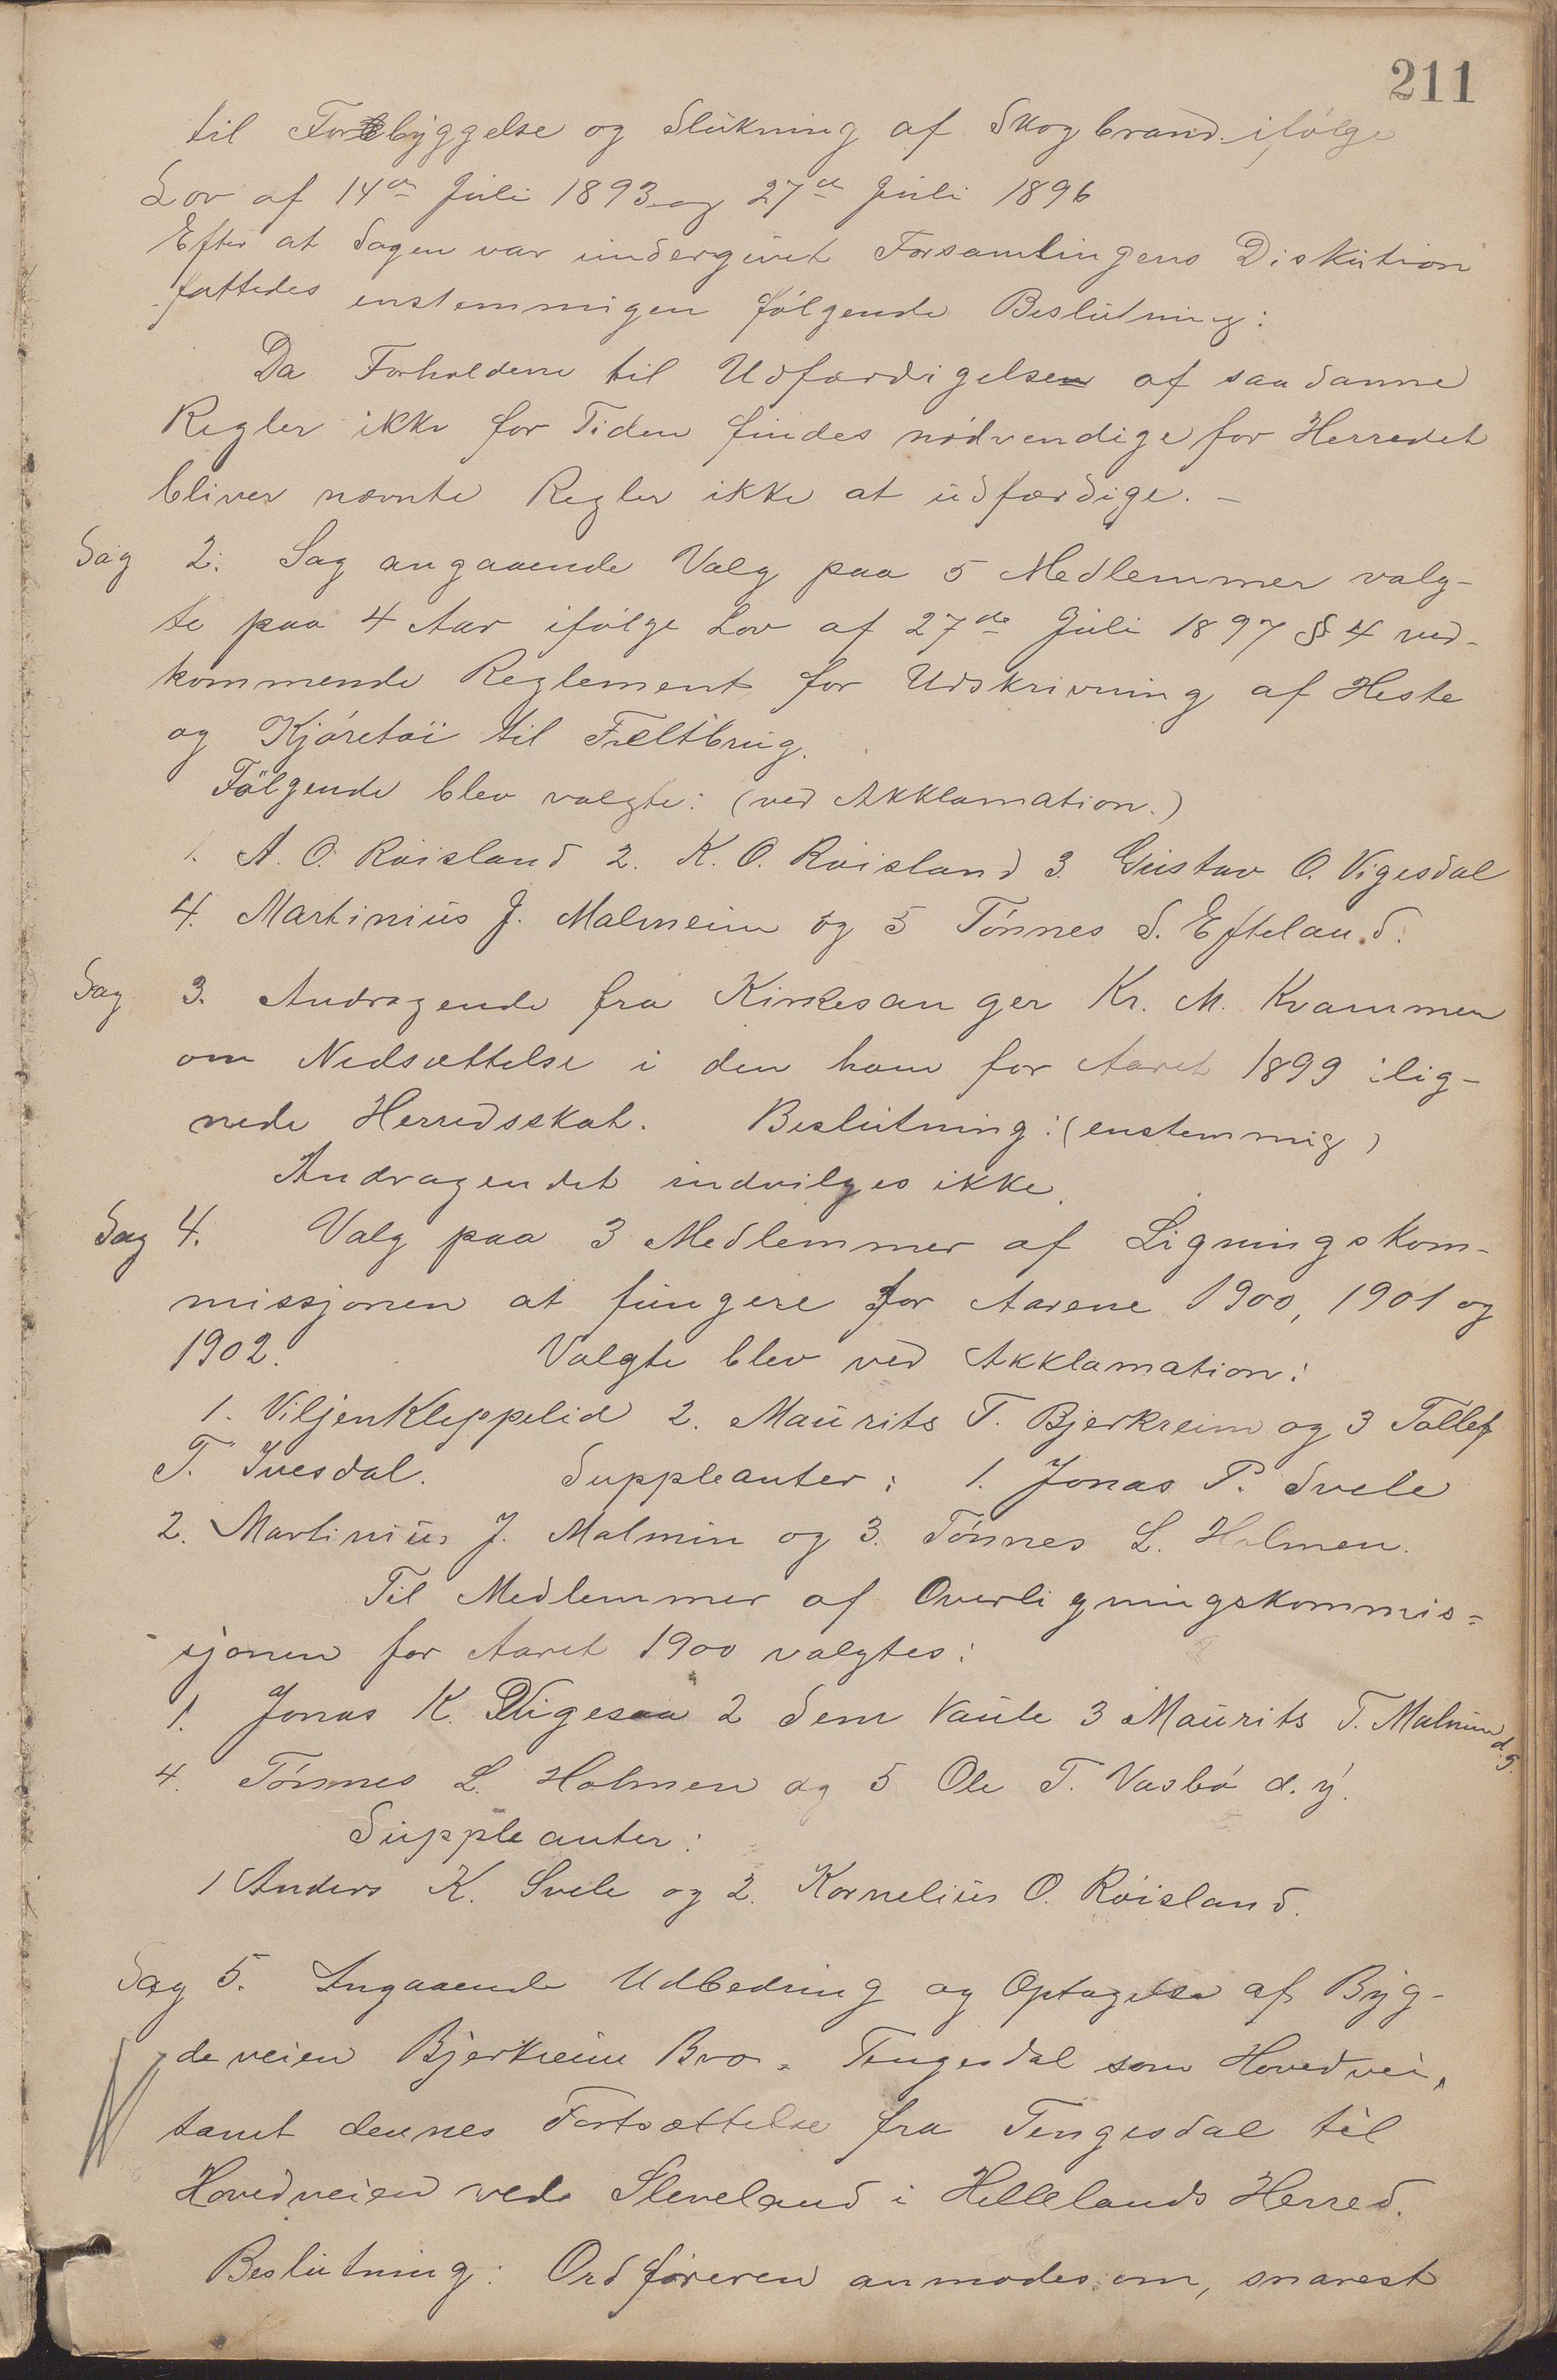 211
til Forebyggelse og Slukning af Skogbrand ifølge
Lov af 14de Juli 1893 og 27de Juli 1896
Efter at Sagen var undergivet Forsamlingens Diskution
fattedes enstemmigen følgende Beslutning:
Da Forholdene til Udfærdigelsen af saadanne
Regler ikke for Tiden findes nødvendige for Herredet
bliver nævnte Regler ikke at udfærdige. -
Sag 2. Sag angaaende Valg paa 5 Medlemmer valg-
te paa 4 Aar ifølge Lov af 27de Juli 1897 § 4 ved-
kommende Reglement for Udskrivning af Heste
og Kjøretøi til Feltbrug.
Følgende blev valgte: (ved Akklamation.)
1. A. O. Røisland 2. K. O. Røisland 3. Gustav O. Vigesdal
4. Martinius J. Malmeim og 5 Tønnes S. Efteland.
Sag 3. Andragende fra Kirkesanger Kr. M. Kvammen
om Nedsættelse i den ham for Aaret 1899 ilig-
nede Herredsskat. Beslutning: (enstemmig)
Andragendet indvilges ikke.
Sag 4. Valg paa 3 Medlemmer af Ligningskom-
missjonen at fungere for Aarene 1900, 1901 og
1902. Valgte blev ved Akklamation:
1. Viljen Kleppelid 2. Maurits T. Bjerkreim og 3 Tollef
T. Ivesdal. Suppleanter: 1. Jonas P. Svele
2. Martinius J. Malmin og 3. Tønnes L. Holmen.
Til Medlemmer af Overligningskommis=
sjonen for Aaret 1900 valgtes:
1. Jonas K. Vigesaa 2 Sem Vaule 3 Maurits T. Malmin
4. Tønnes L. Holmen og 5 Ole T. Vasbø d. y.
Suppleanter:
1 Anders K. Svele og 2. Kornelius O. Røisland.
Sag 5. Angaaende Udbedring og Optagelse af Byg-
deveien Bjerkreim Bro - Tengesdal som Hovedvei,
samt dennes Fortsættelse fra Tengesdal til
Hovedveien ved Sleveland i Hellelands Herred.
Beslutning: Ordføreren anmodes om, snarest